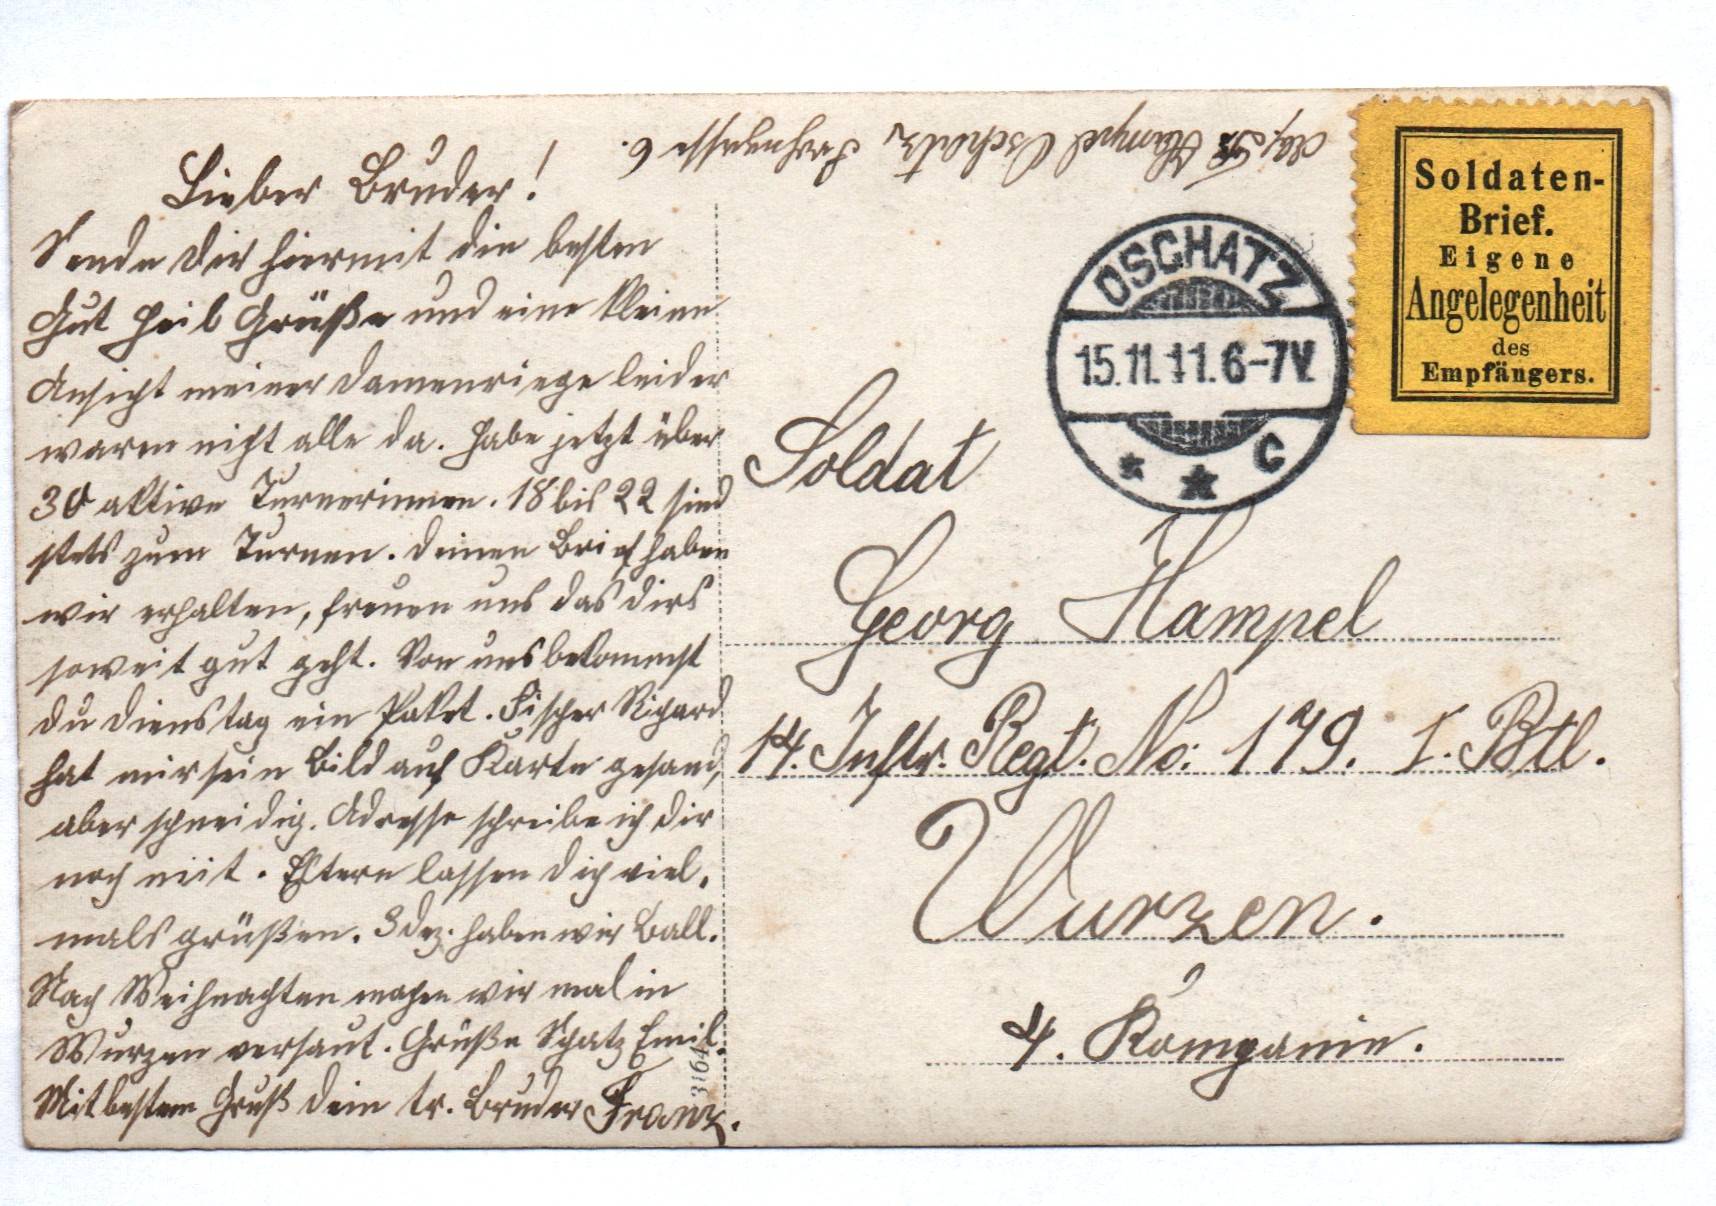 Lieber Bruder!
Sende dir hiermit die besten
Gut Heil Grüße und eine kleine
Ansicht meiner Damenriege leider
waren nicht alle da. Habe jetzt über
30 aktive Turnerinnen. 18 bis 22 sind
stets zum Turnen. Deinen Brief haben
wir erhalten, freuen uns das dirs
soweit gut geht. Von uns bekommst
du Dienstag ein Paket. Fischer Richard
hat mir sein Bild auf Karte gesand,
aber schneidig. Adresse schreibe ich dir
noch mit. Eltern lassen dich viel,
mals grüßen. 3 Dez. haben wir Ball.
Nach Weihnachten machen wir mal in
Wurzen . Grüße Schatz Emil.
Mit bestem Gruß dein tr. Bruder Franz.
31647
Hampel Oschatz 6.
OSCHATZ
15.11.11.6-7V.
* * C
Soldaten-
Brief.
Eigene
Angelegenheit
des
Empfängers.
Soldat
Georg Hampel
14. Inftr. Regt. No: 179. I. Btl.
Wurzen.
4. Kompanie.